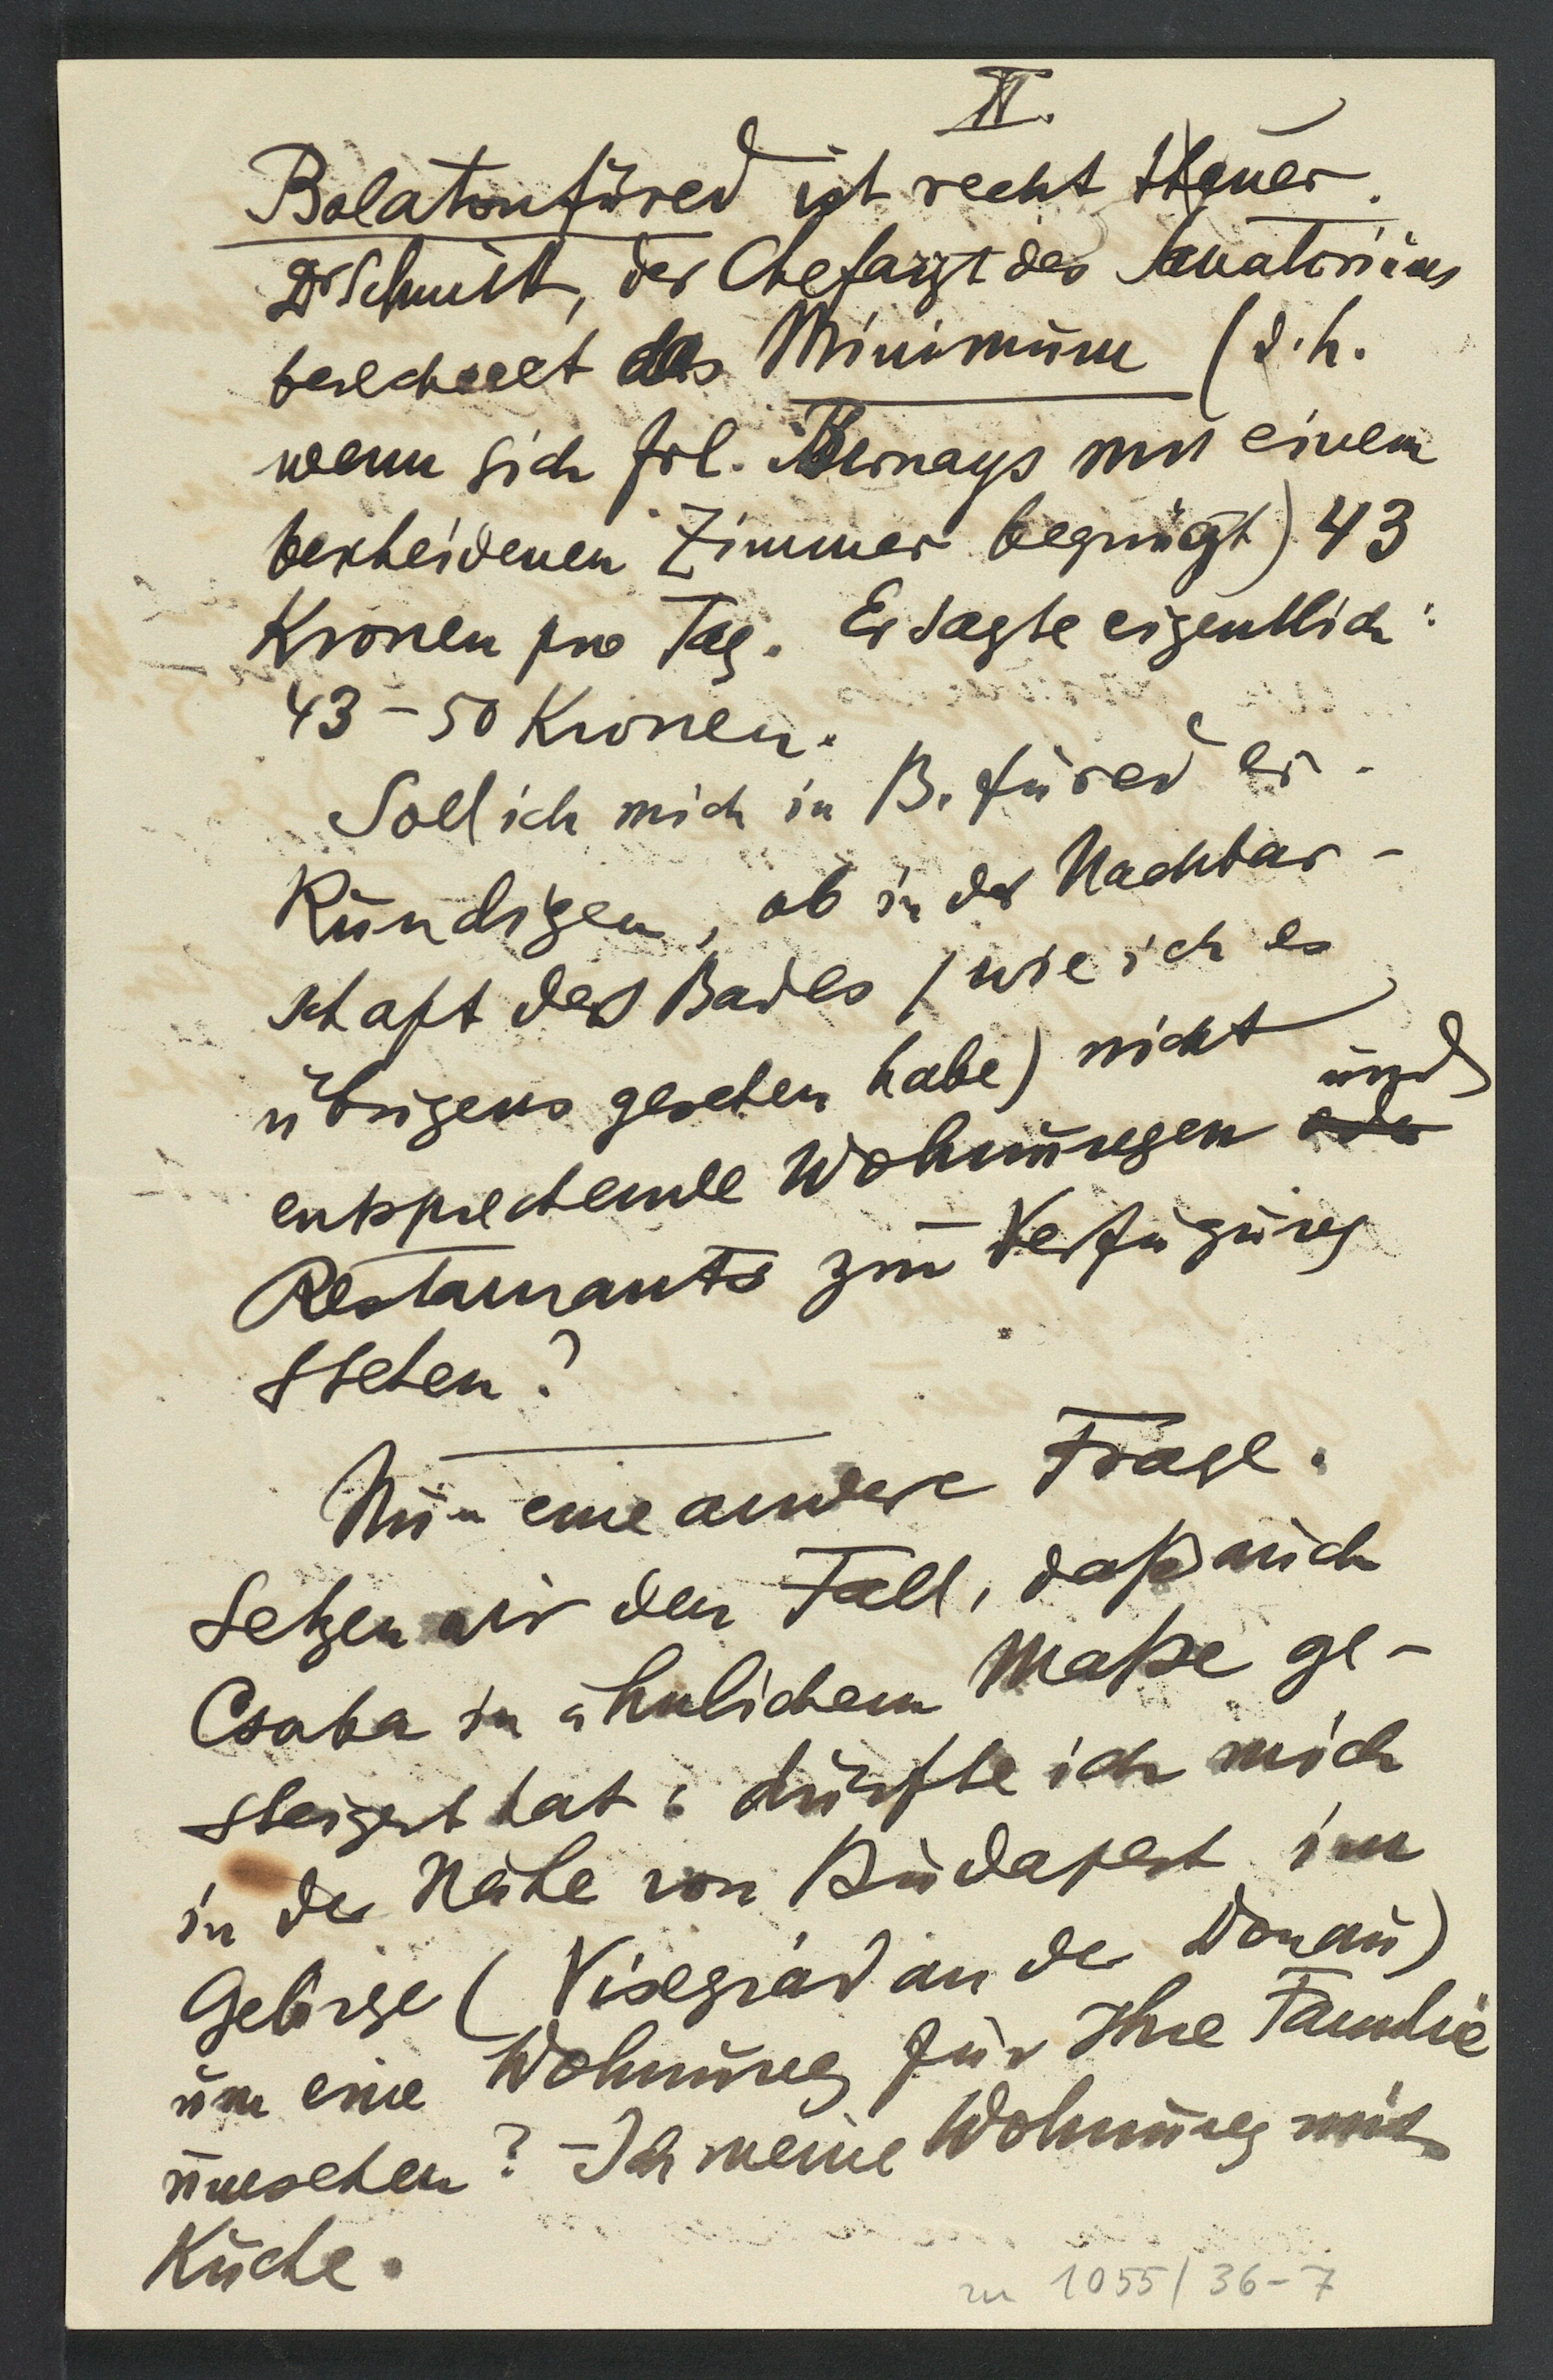 II.
Balatonfüred ist recht theuer.
Dr Schmitt, der Chefarzt des Sanatoriums
berechnet das Minimum (d.h.
wenn sich Frl. Bernays mit einem
bescheidenen Zimmer begnügt) 43
Kronen pro Tag. Er sagte eigentlich:
43–50 Kronen.
Soll ich mich in B. füred er-
kundigen, ob in der Nachbar-
schaft des Bades (wie ich es
übrigens gesehen habe) nicht
und
entsprechende Wohnungen oder
Restaurants zur Verfügung
stehen?
Nun eine andere Frage.
Setzen wir den Fall, daß mich
Csaba in ähnlichem Maße ge-
steigert hat: dürfte ich mich
in der Nähe von Budapest im
Gebirge (Visegrád an der Donau)
um eine Wohnung für Ihre Familie
umsehen? – Ich meine Wohnung mit
Küche.
zu 1055/36-7